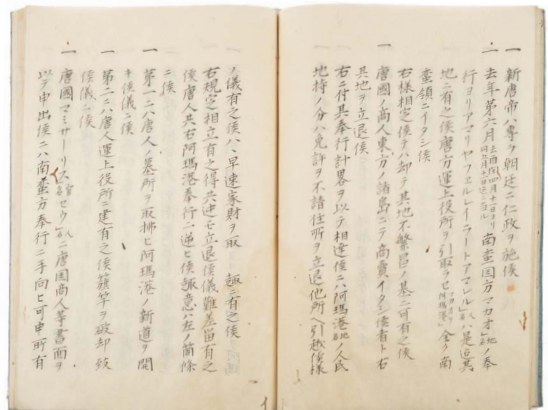 一 新唐帝ハ專ラ朝廷ニ仁政ヲ施候
一 去年第六月 南蛮国方マカオ地名ノ奉
行ヨリアマリヤフエルレイラートアマレル人名ハ是迄其
地ニ有之候唐方運上役所ヲ引取ラセ阿瑪港 全ク南
蛮領ニイタシ候
右様相定候テハ却テ其地不繁昌ノ基ニ可有之候
一 唐國ノ商人東方ノ諸島ニテ商賣イタシ候者ト右
其地ヲ立退候
右ニ付其奉行計畧ヲ以テ相達候ニハ阿瑪港地名ノ人民
地持ノ分ハ免許ヲ不請住所ヲ立退他所ヘ引越候様
ノ儀有之候ハヽ早速家財ヲ取 趣ニ有之候
右規定相立有之得共迚モ立退候儀難差留有之
候唐人共右阿瑪港奉行ニ逆ヒ候趣意ハ左ノ箇條
ニ候
一 第一ニハ唐人ノ墓所ヲ取拂ヒ阿瑪港ノ新道ヲ開
キ候儀ニ候
一 第二ニハ唐人運上役所ニ建有之候籏竿ヲ破却致
候儀ニ候
一 唐國マミサーリス官名セウ人名ニ唐國商人等書面ヲ
以テ申出候ニハ南蛮方奉行ニ手向ヒ可申所有